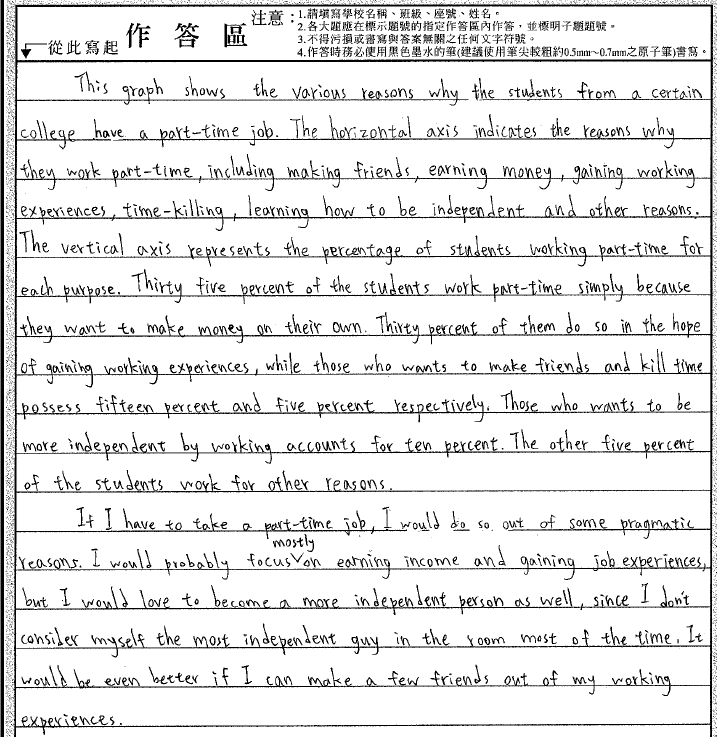 從此寫起 作答區 注意：1.請填寫學校名稱、班級、座號、姓名。
2.各大題應在標示題號的指定作答區內作答，並標明子題題號。
3.不得污損或書寫與答案無關之任何文字符號。
4.作答時務必使用黑色墨水的筆(建議使用筆尖較粗約0.5mm~0.7mm之原子筆)書寫。
This graph shows the various reasons why the students from a certain
college have a part-time job. The horizontal axis indicates the reasons why
they work part-time, including making friends, earning money, gaining working
experiences, time-killing, learning how to be independent and other reasons.
The vertical axis represents the percentage of students working part-time for
each purpose. Thirty five percent of the students work part-time simply because
they want to make money on their own. Thirty percent of them do so in the hope
of gaining working experiences, while those who wants to make friends and kill time
possess fifteen percent and five percent respectively. Those who wants to be
more independent by working accounts for ten percent. The other five percent
of the students work for other reasons.
If I have to take a part-time job, I would do so out of some pragmatic
mostly
reasons. I would probably focus on earning income and gaining job experiences,
but I would love to become a more independent person as well, since I don't
consider myself the most independent guy in the room most of the time. It
would be even better if I can make a few friends out of my working
experiences.